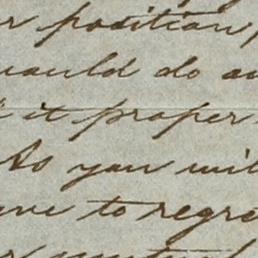 position,
would do
it proper
As you will
to regre